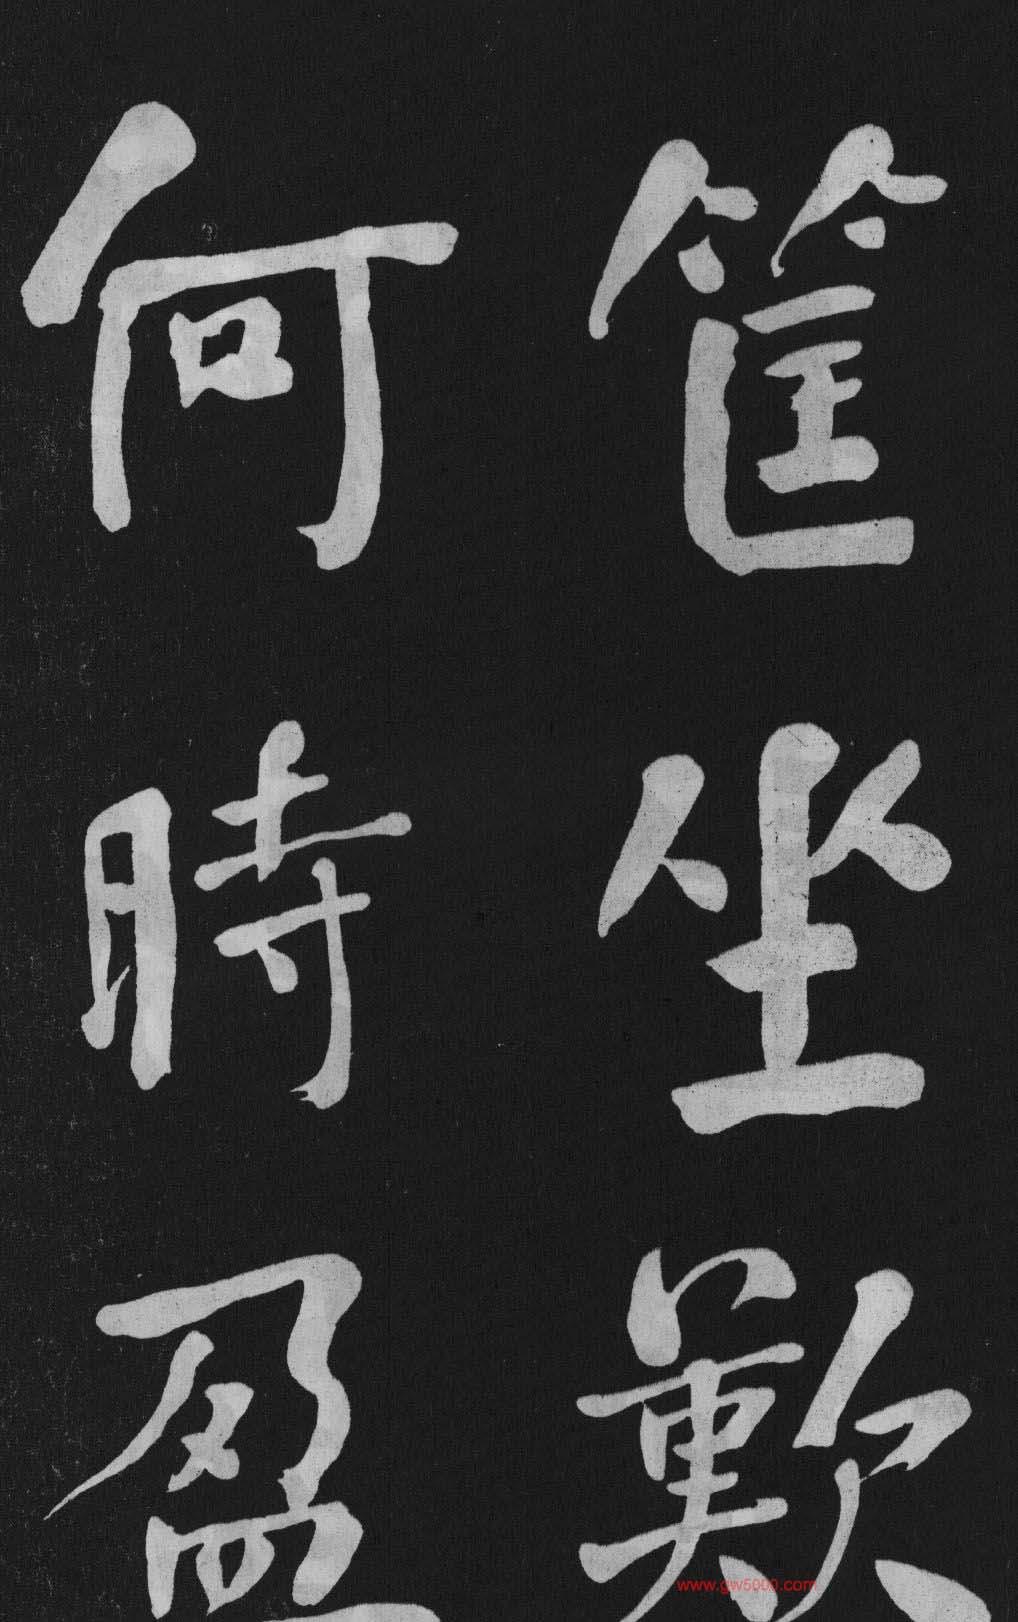 筐坐歎
何時盈
www.gw5000.com